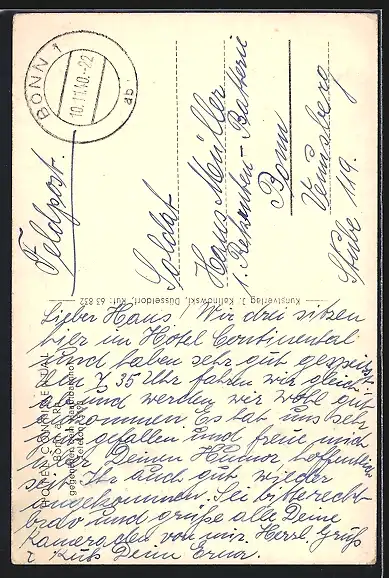 BONN 1
10.11.40.-22
ab
Feldpost.
Soldat
Hans Müller
1. Rekruten-Batterie
Bonn
Venusberg
Stube 119.
Kunstverlag J. Kalinowski, Düsseldorf, Ruf: 63 832
HOTEL CONTINENTAL
BONN A. RH.
gegenüber dem Hauptbahnhof
Lieber Hans! Wir drei sitzen
hier im Hotel Continental
und haben sehr gut gespeist
Um 7,35 Uhr fahren wir gleich
ab und werden wir wohl gut
ankommen Es hat uns sehr
gut gefallen und freue mich
über Deinen Humor. hoffentlich
seit Ihr auch gut wieder
angekommen. Sei bitte recht
brav und grüße alle Deine
Kameraden von mir. Herzl. Gruß
u Kuß Deine Erna.